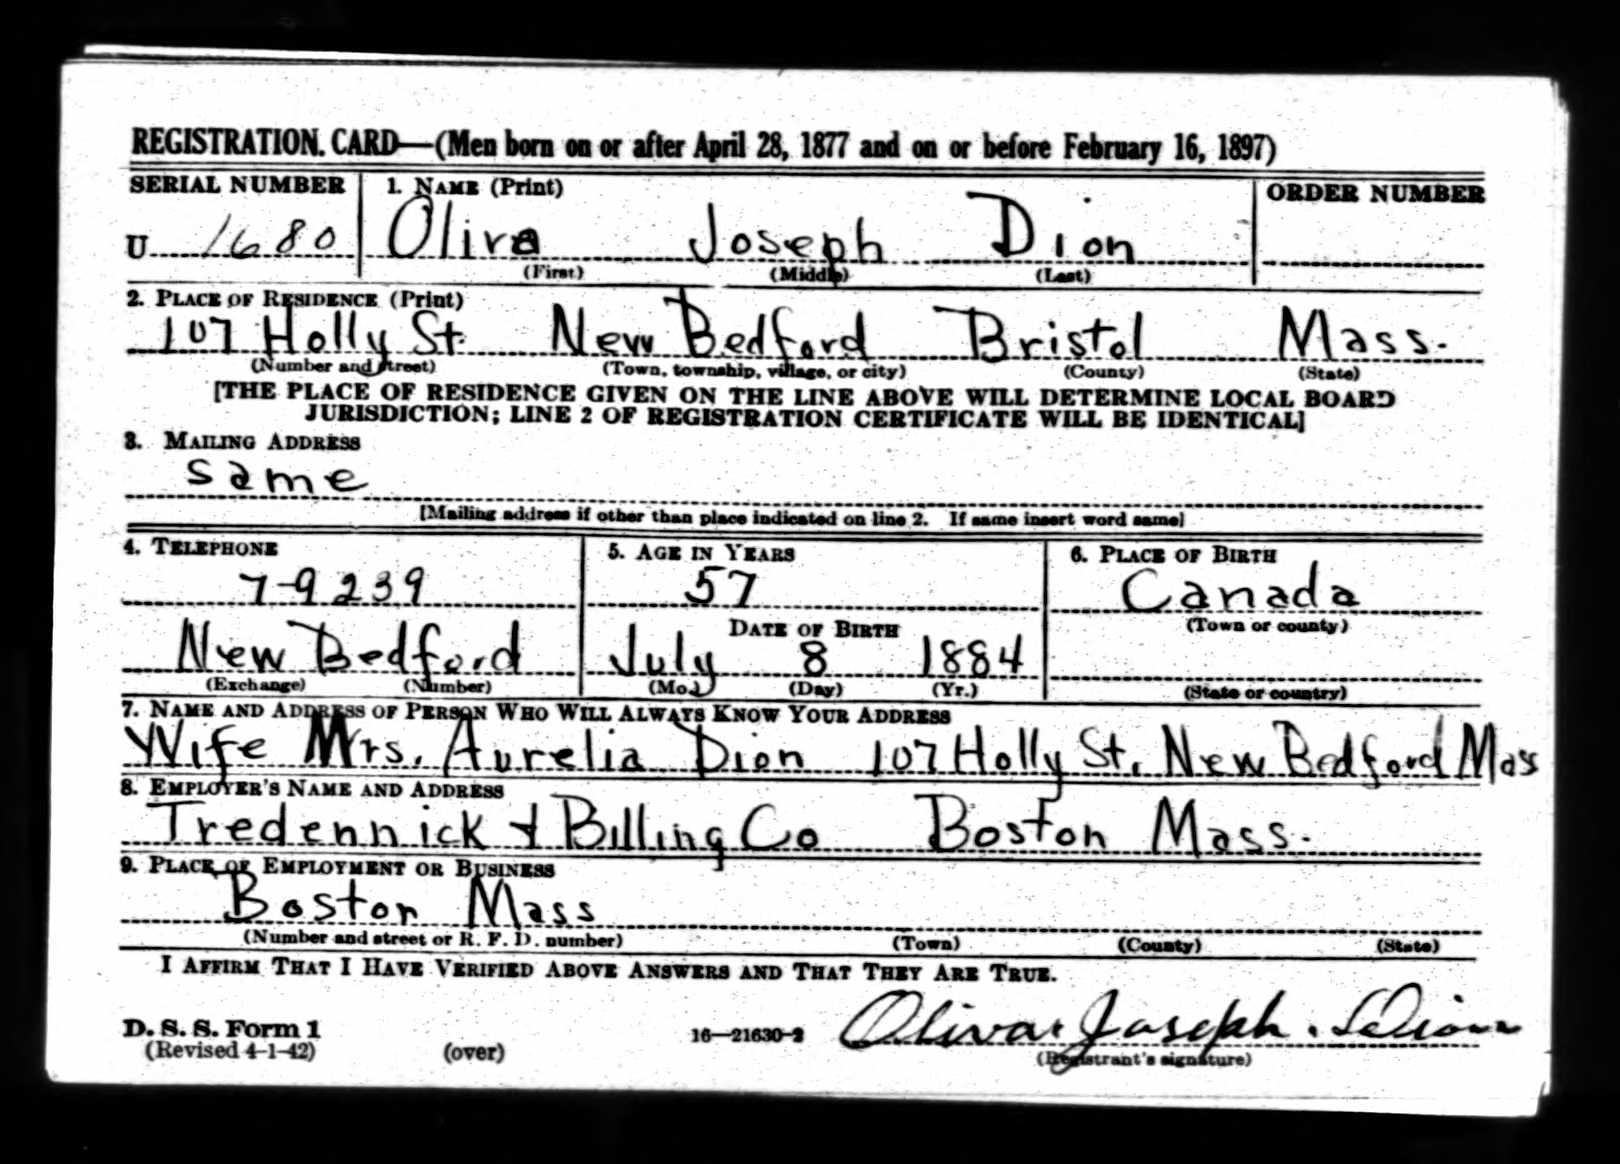 REGISTRATION CARD—(Men born on or after April 28, 1877 and on or before February 16, 1897)
SERIAL NUMBER 1. NAME (Print) ORDER NUMBER
U 1680 Oliva Joseph Dion
(First) (Middle) (Last)
2. PLACE OF RESIDENCE (Print)
107 Holly St. New Bedford Bristol Mass.
(Number and street) (Town, township, village, or city) (County) (State)
[THE PLACE OF RESIDENCE GIVEN ON THE LINE ABOVE WILL DETERMINE LOCAL BOARD
JURISDICTION; LINE 2 OF REGISTRATION CERTIFICATE WILL BE IDENTICAL]
3. MAILING ADDRESS
same
[Mailing address if other than place indicated on line 2. If same insert word same]
4. TELEPHONE 5. AGE IN YEARS 6. PLACE OF BIRTH
7-9239 57 Canada
DATE OF BIRTH (Town or county)
New Bedford July 8 1884
(Exchange) (Number) (Mo.) (Day) (Yr.) (State or country)
7. NAME AND ADDRESS OF PERSON WHO WILL ALWAYS KNOW YOUR ADDRESS
Wife Mrs. Aurelia Dion 107 Holly St. New Bedford Mass
8. EMPLOYER'S NAME AND ADDRESS
Tredennick + Billing Co Boston Mass.
9. PLACE OF EMPLOYMENT OR BUSINESS
Boston Mass
(Number and street or R. F. D. number) (Town) (County) (State)
I AFFIRM THAT I HAVE VERIFIED ABOVE ANSWERS AND THAT THEY ARE TRUE.
D. S. S. Form 1 16—21630-2 Oliva Joseph Dion
(Revised 4-1-42) (over) (Registrant's signature)